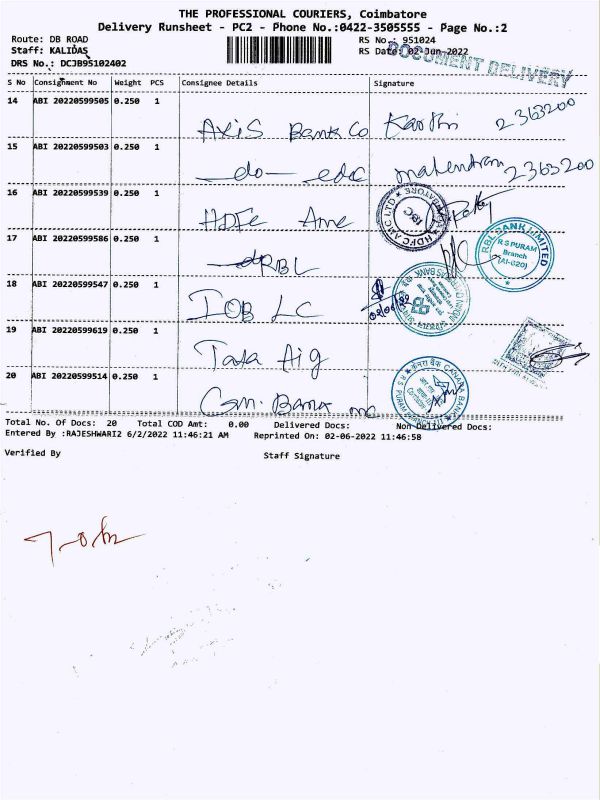 THE PROFESSIONAL COURIERS, Coimbatore
Delivery Runsheet - PC2 - Phone No.:0422-3505555 - Page No.:2
Route: DB ROAD
RS No.: 951024
Staff: KALIDAS
RS Date: 02-Jun-2022
DRS No.: DCJB95102402
DOCUMENT DELIVERY
S No Consignment No Weight PCS Consignee Details Signature
14 ABI 20220599505 0.250 1
Axis Bank Co Karthi 2363200
15 ABI 20220599503 0.250 1
—do— edc Mahendran 2363200
16 ABI 20220599539 0.250 1
HDFC Amc
HDFC AMC LTD
17 ABI 20220599586 0.250 1
RBL
RBL BANK LIMITED
R S PURAM
Branch
18 ABI 20220599547 0.250 1
IOB LC
19 ABI 20220599619 0.250 1
Tata Aig
20 ABI 20220599514 0.250 1
Can. Bank
केनरा बैंक CANARA BANK
Total No. Of Docs: 20 Total COD Amt: 0.00 Delivered Docs: Non Delivered Docs:
Entered By :RAJESHWARI2 6/2/2022 11:46:21 AM Reprinted On: 02-06-2022 11:46:58
Verified By Staff Signature